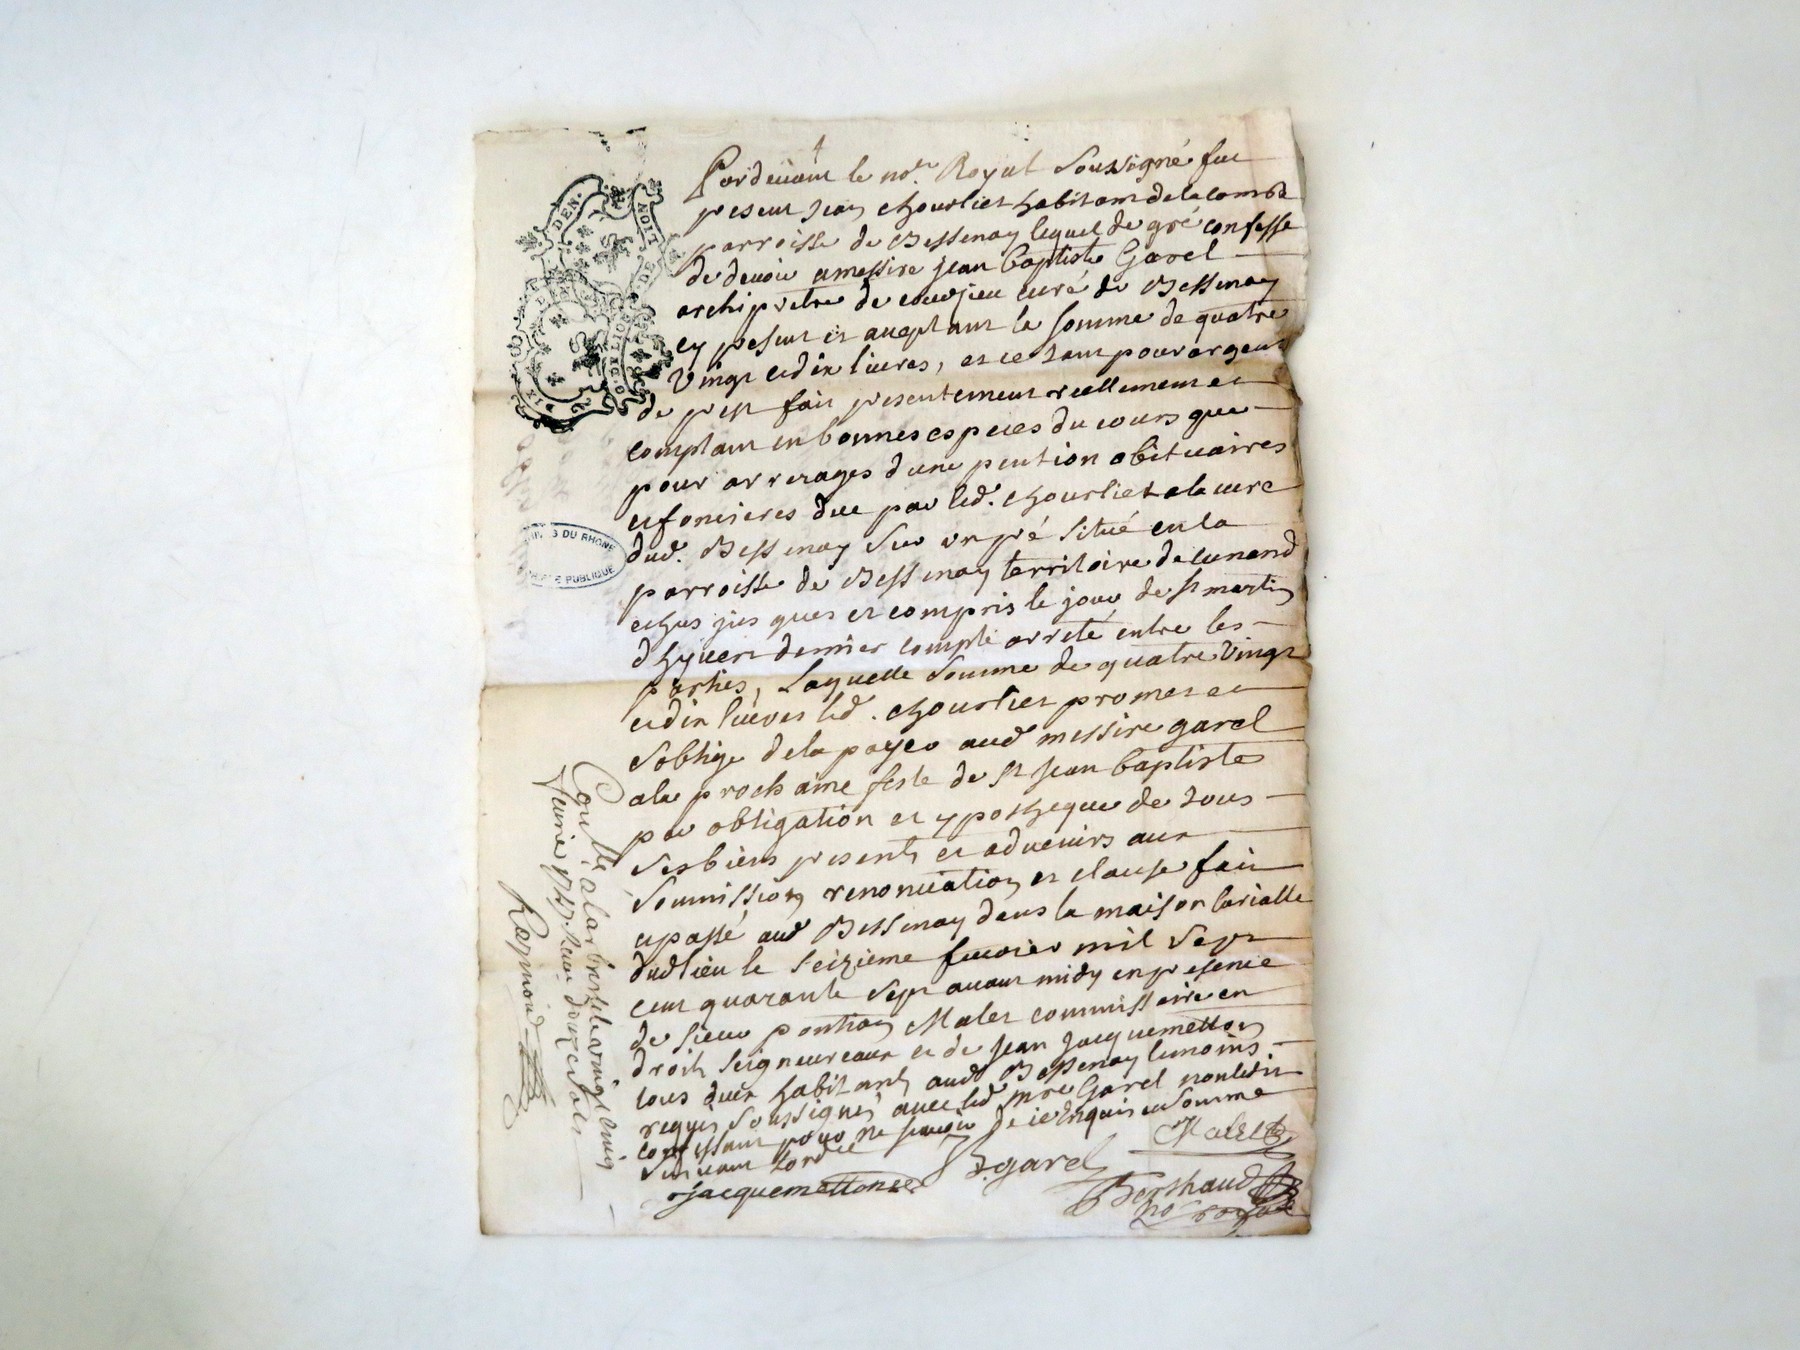 Pardevant le no.re Royal Soussigné fut
present Jean chourliet habitant de la combe
parroisse de Bessenay lequel de gré confesse
de devoir a messire jean baptiste Garel
archiprêtre de courjieu curé de Bessenay
cy present et aceptant la somme de quatre
Vingt et dix livres, et ce tant pour argent
de prest fait presentement reellement et
comptant en bonnes especes du cours que
pour arrerages d'une pention obituaires
et foncieres due par led. chourliet a la cure
dud. Bessenay sur un pré situé en la
parroisse de Bessenay territoire de
echus jusques et compris le jour de st martin
d'hyvert dernier compte arreté entre les
parties, Laquelle somme de quatre Vingt
et dix livres led. chourliet promet et
s'oblige de la payer aud messire garel
a la prochaine feste de st Jean baptiste
par obligation et ypotheque de tous
ses biens presents et advenirs aux
soumission renonciation et clause fait
et passé aud Bessenay dans la maison curialle
dud lieu le seizième fevrier mil sept
cent quarante sept avant midy en presence
de sieur pontian Malet commissaire en
droits seigneureaux et de Jean Jacquemetton
tous deux habitants aud Bessenay temoins
requis soussignés avec led. mre Garel non led
confessant pour ne sçavoir de ce enquis et sommé
suivant Lordce
jacquemetton
J. garel
Malet
Berthaud
no royal
Conllé a larbresle le vingt cinq
fevrier 1747 Recu douze sols
Raymond
GEN.
DU RHONE
PUBLIQUE